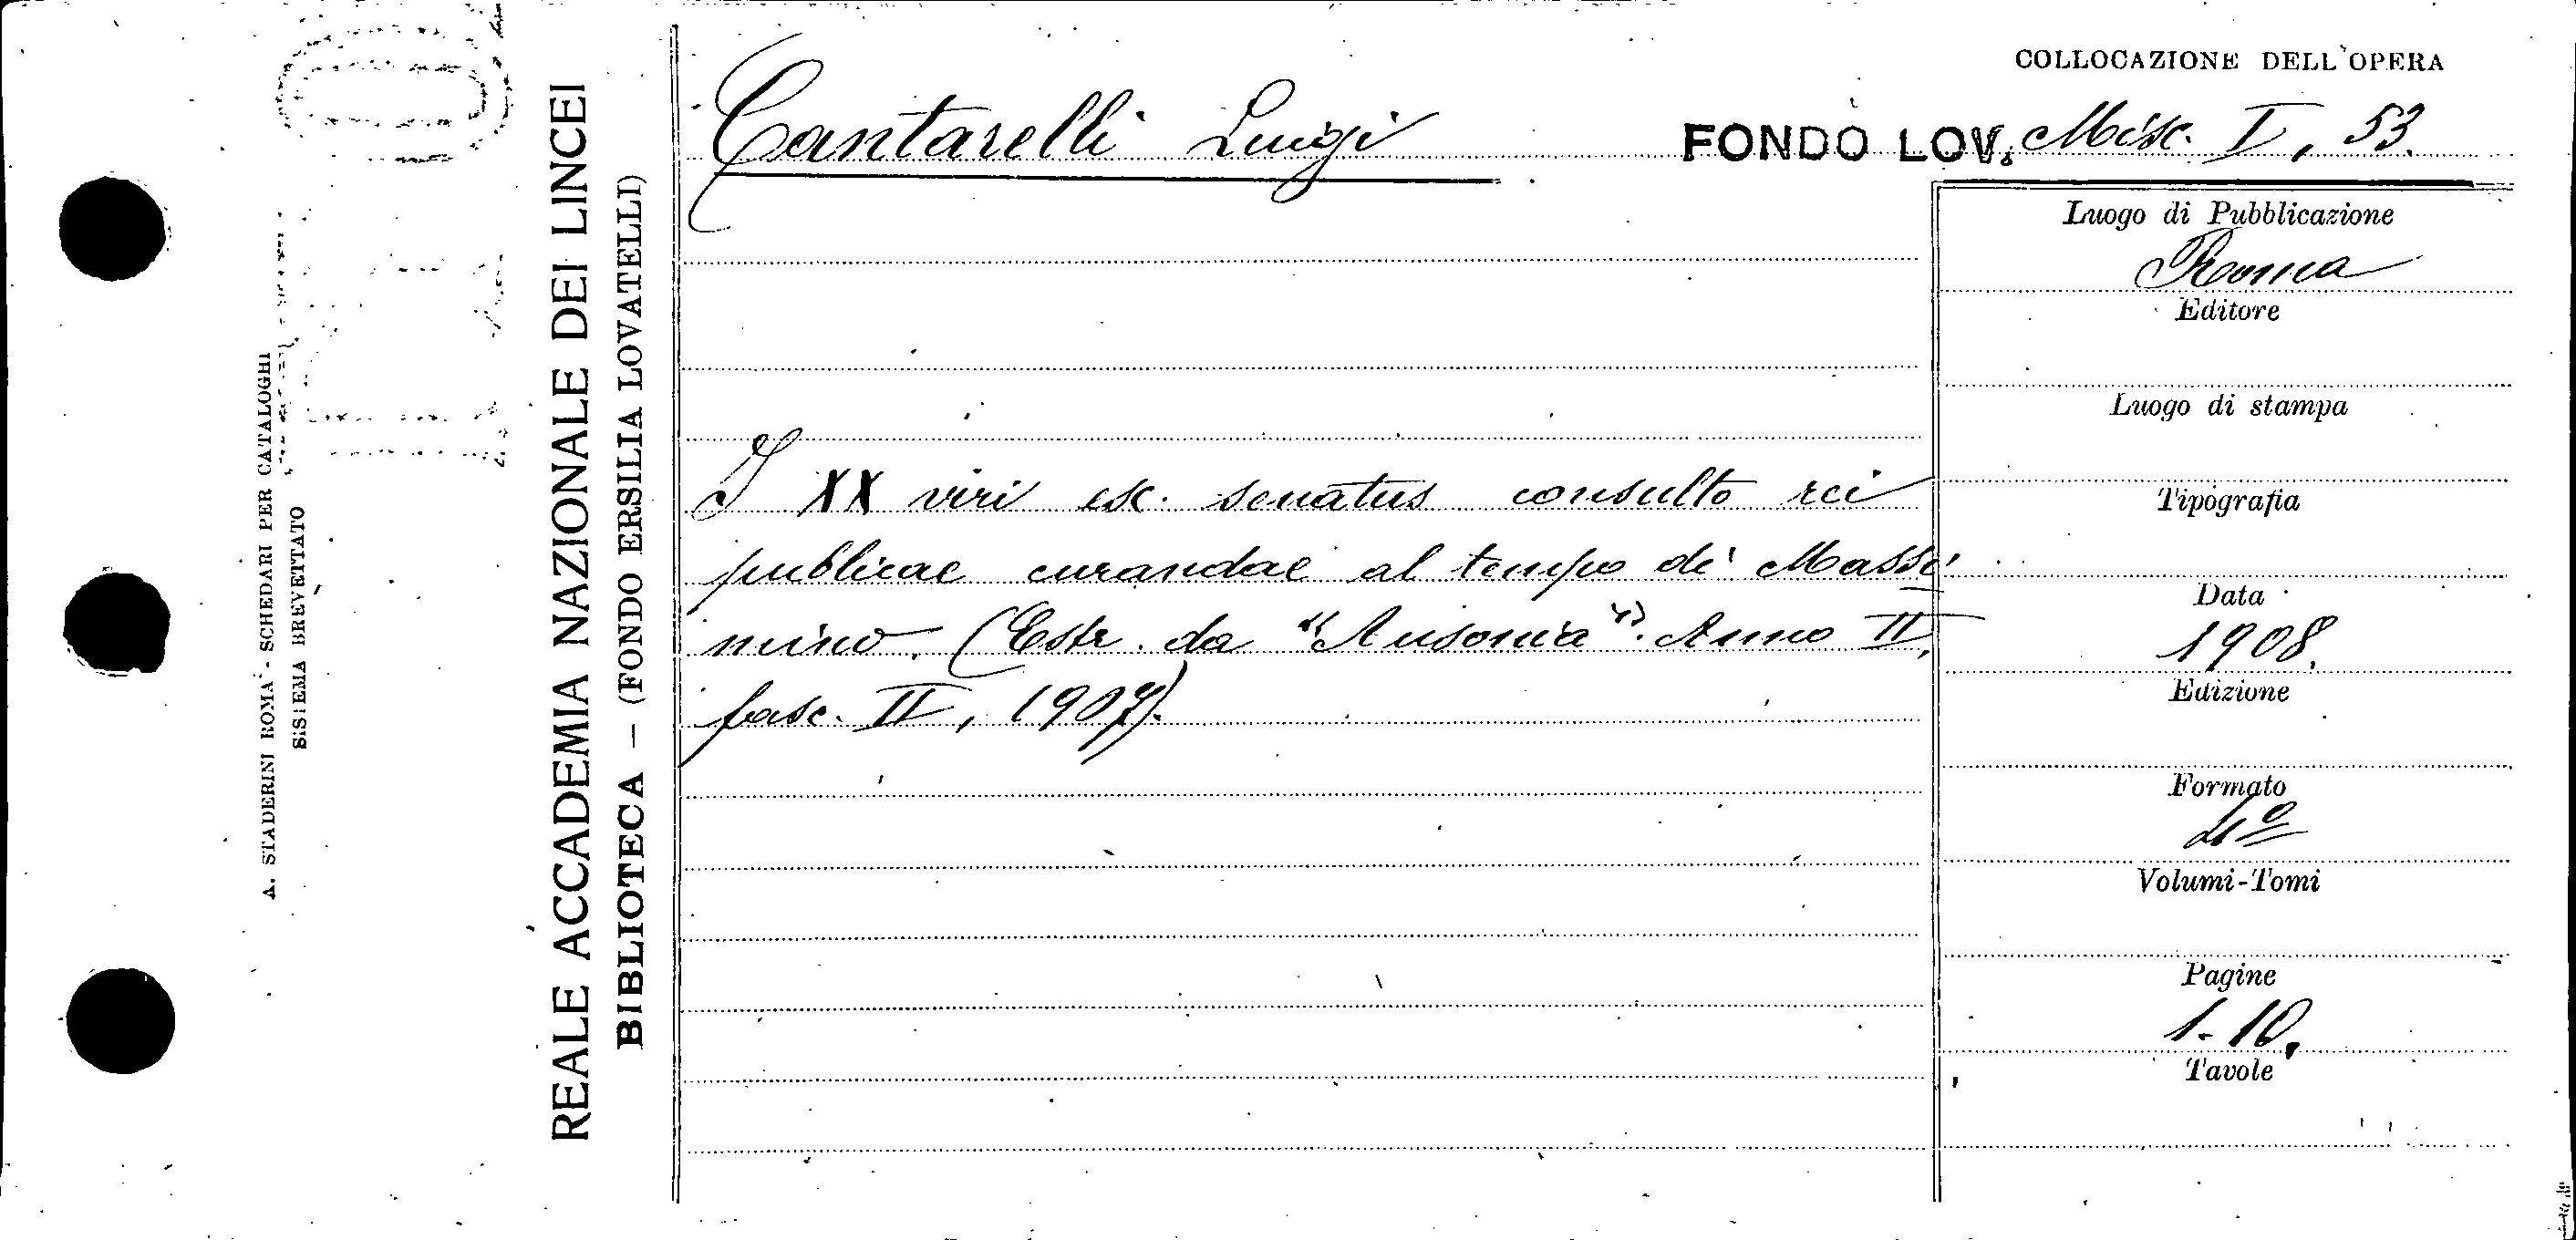 COLLOCAZIONE DELL'OPERA
Cantarelli Luigi
FONDO LOV. Misc. I, 53.
I XX viri ex. senatus consulto rei
publicae curandae al tempo di Massi
mino. (Estr. da "Ausonia". Anno II,
fasc. II, 1907).
Luogo di Pubblicazione
Roma
Editore
Luogo di stampa
Tipografia
Data
1908.
Edizione
Formato
4º
Volumi-Tomi
Pagine
1-10.
Tavole
REALE ACCADEMIA NAZIONALE DEI LINCEI
BIBLIOTECA — (FONDO ERSILIA LOVATELLI)
A. STADERINI ROMA - SCHEDARI PER CATALOGHI
SISTEMA BREVETTATO